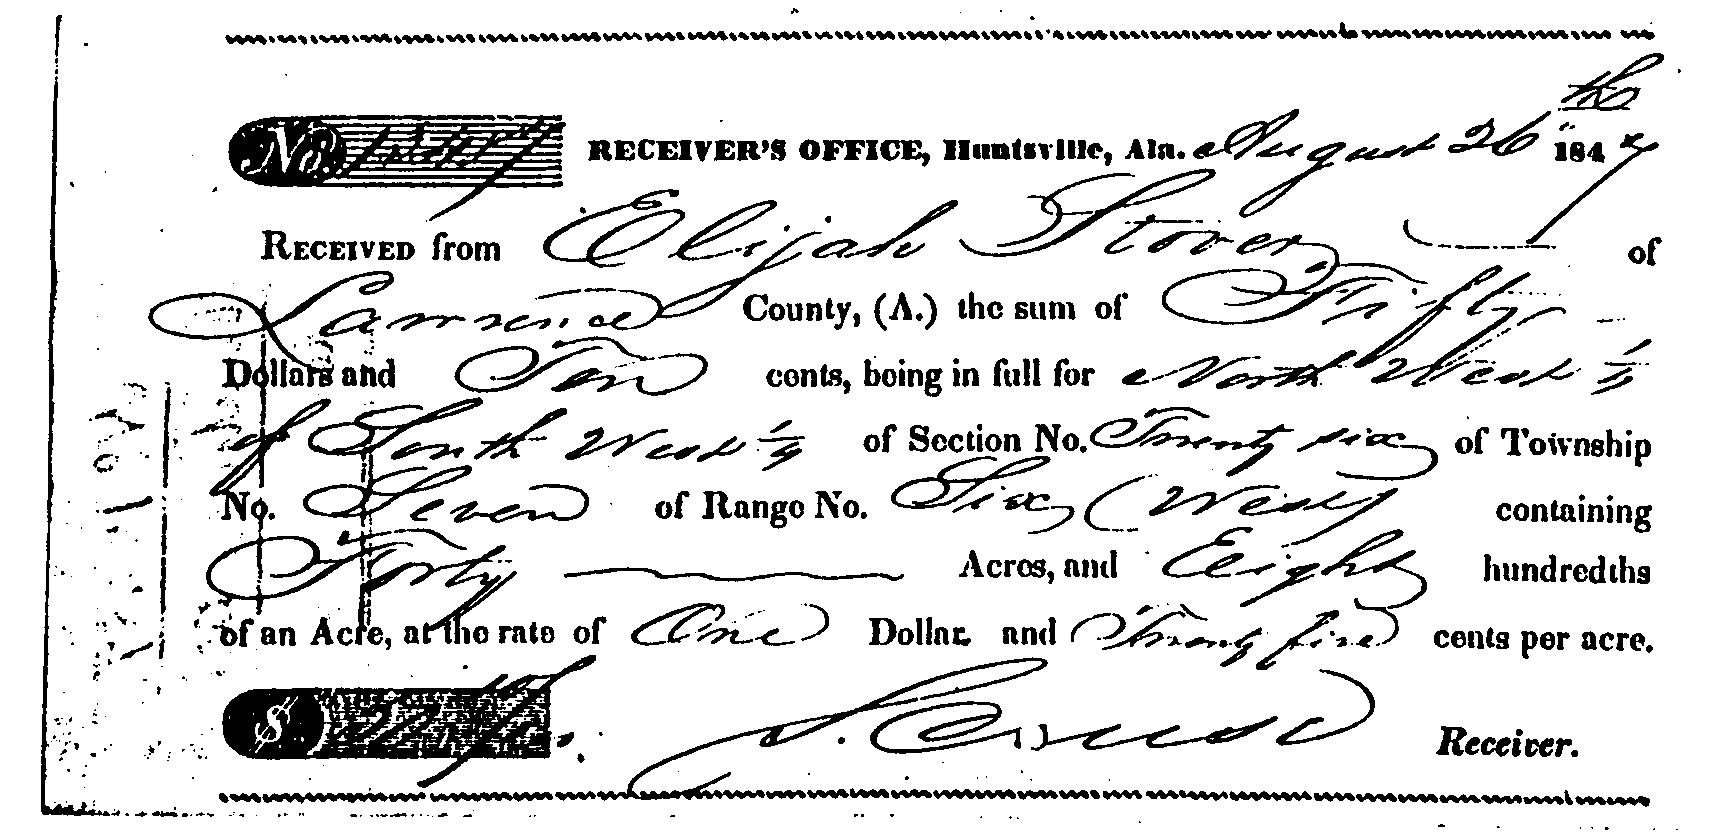 No. RECEIVER'S OFFICE, Huntsville, Ala. August 26th 1847
RECEIVED from Elijah Stover of
Lawrence County, (A.) the sum of Fifty
Dollars and Ten cents, being in full for North West 1/4
of South West 1/4 of Section No. Twenty six of Township
No. Seven of Range No. Six (West) containing
Forty Acres, and Eight hundredths
of an Acre, at the rate of One Dollar and Twenty five cents per acre.
$ S. Cruse Receiver.